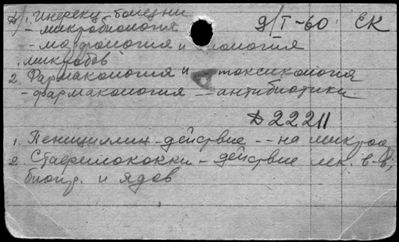 1) Инфекц. болезни 9/I-60 ЕК
- микробиология
- морфология и биология
микробов
2. Фармакология и токсикология
- фармакология -- антибиотики
Д22211
1. Пенициллин - действие -- на микроб
2. Стафилококки - действие лек. в-в,
биопр. и ядов